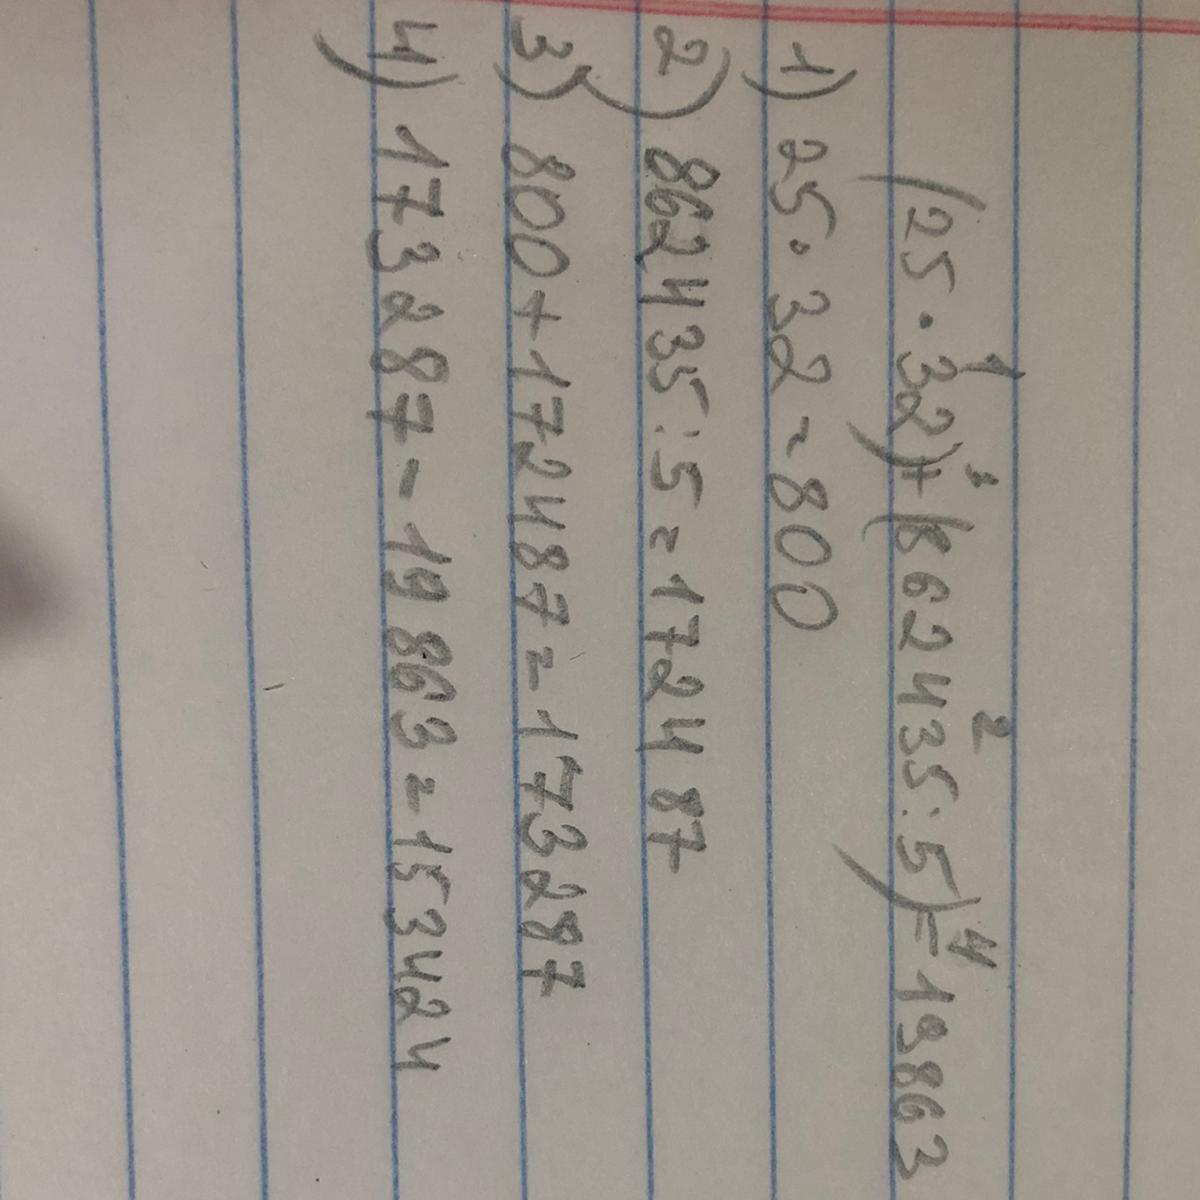 (25 · 32) + (862435 : 5) - 19863
1) 25 · 32 = 800
2) 862435 : 5 = 172487
3) 800 + 172487 = 173287
4) 173287 - 19863 = 153424